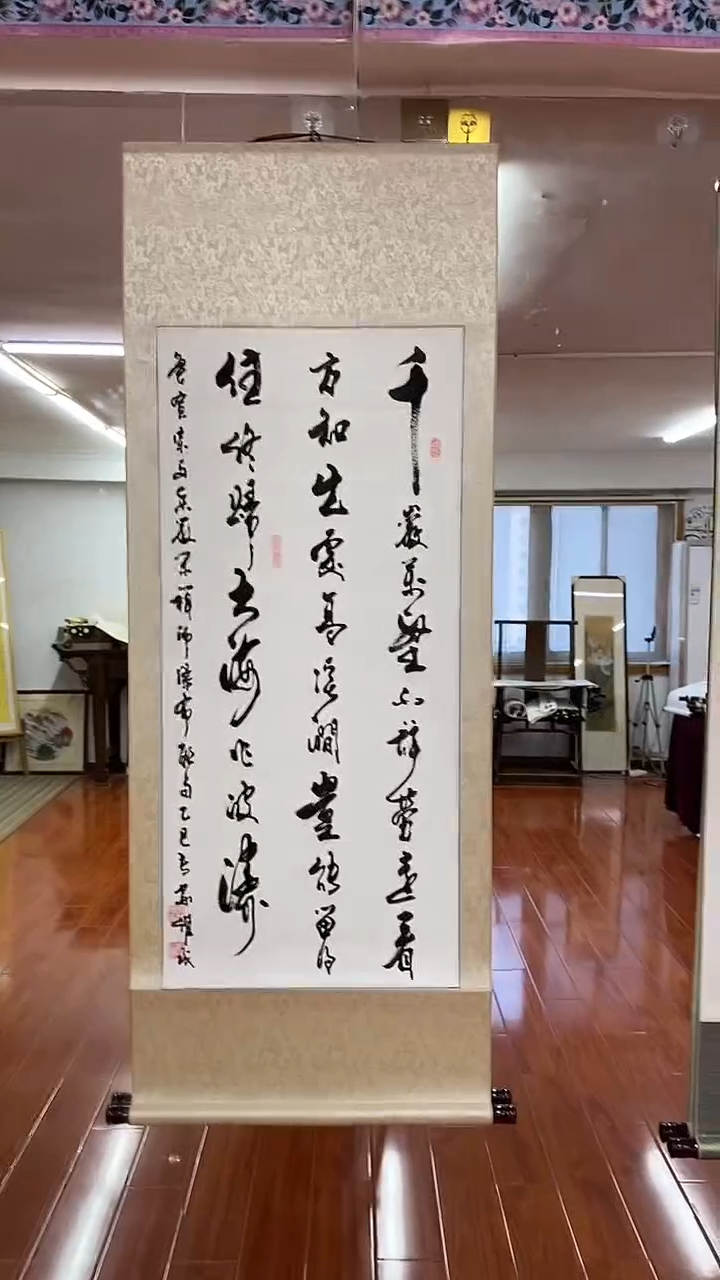 千巖萬壑不辭勞遠看
方知出處高溪澗豈能留得
住終歸大海作波濤
唐宣宗與香嚴閑禪師瀑布聯句乙巳春